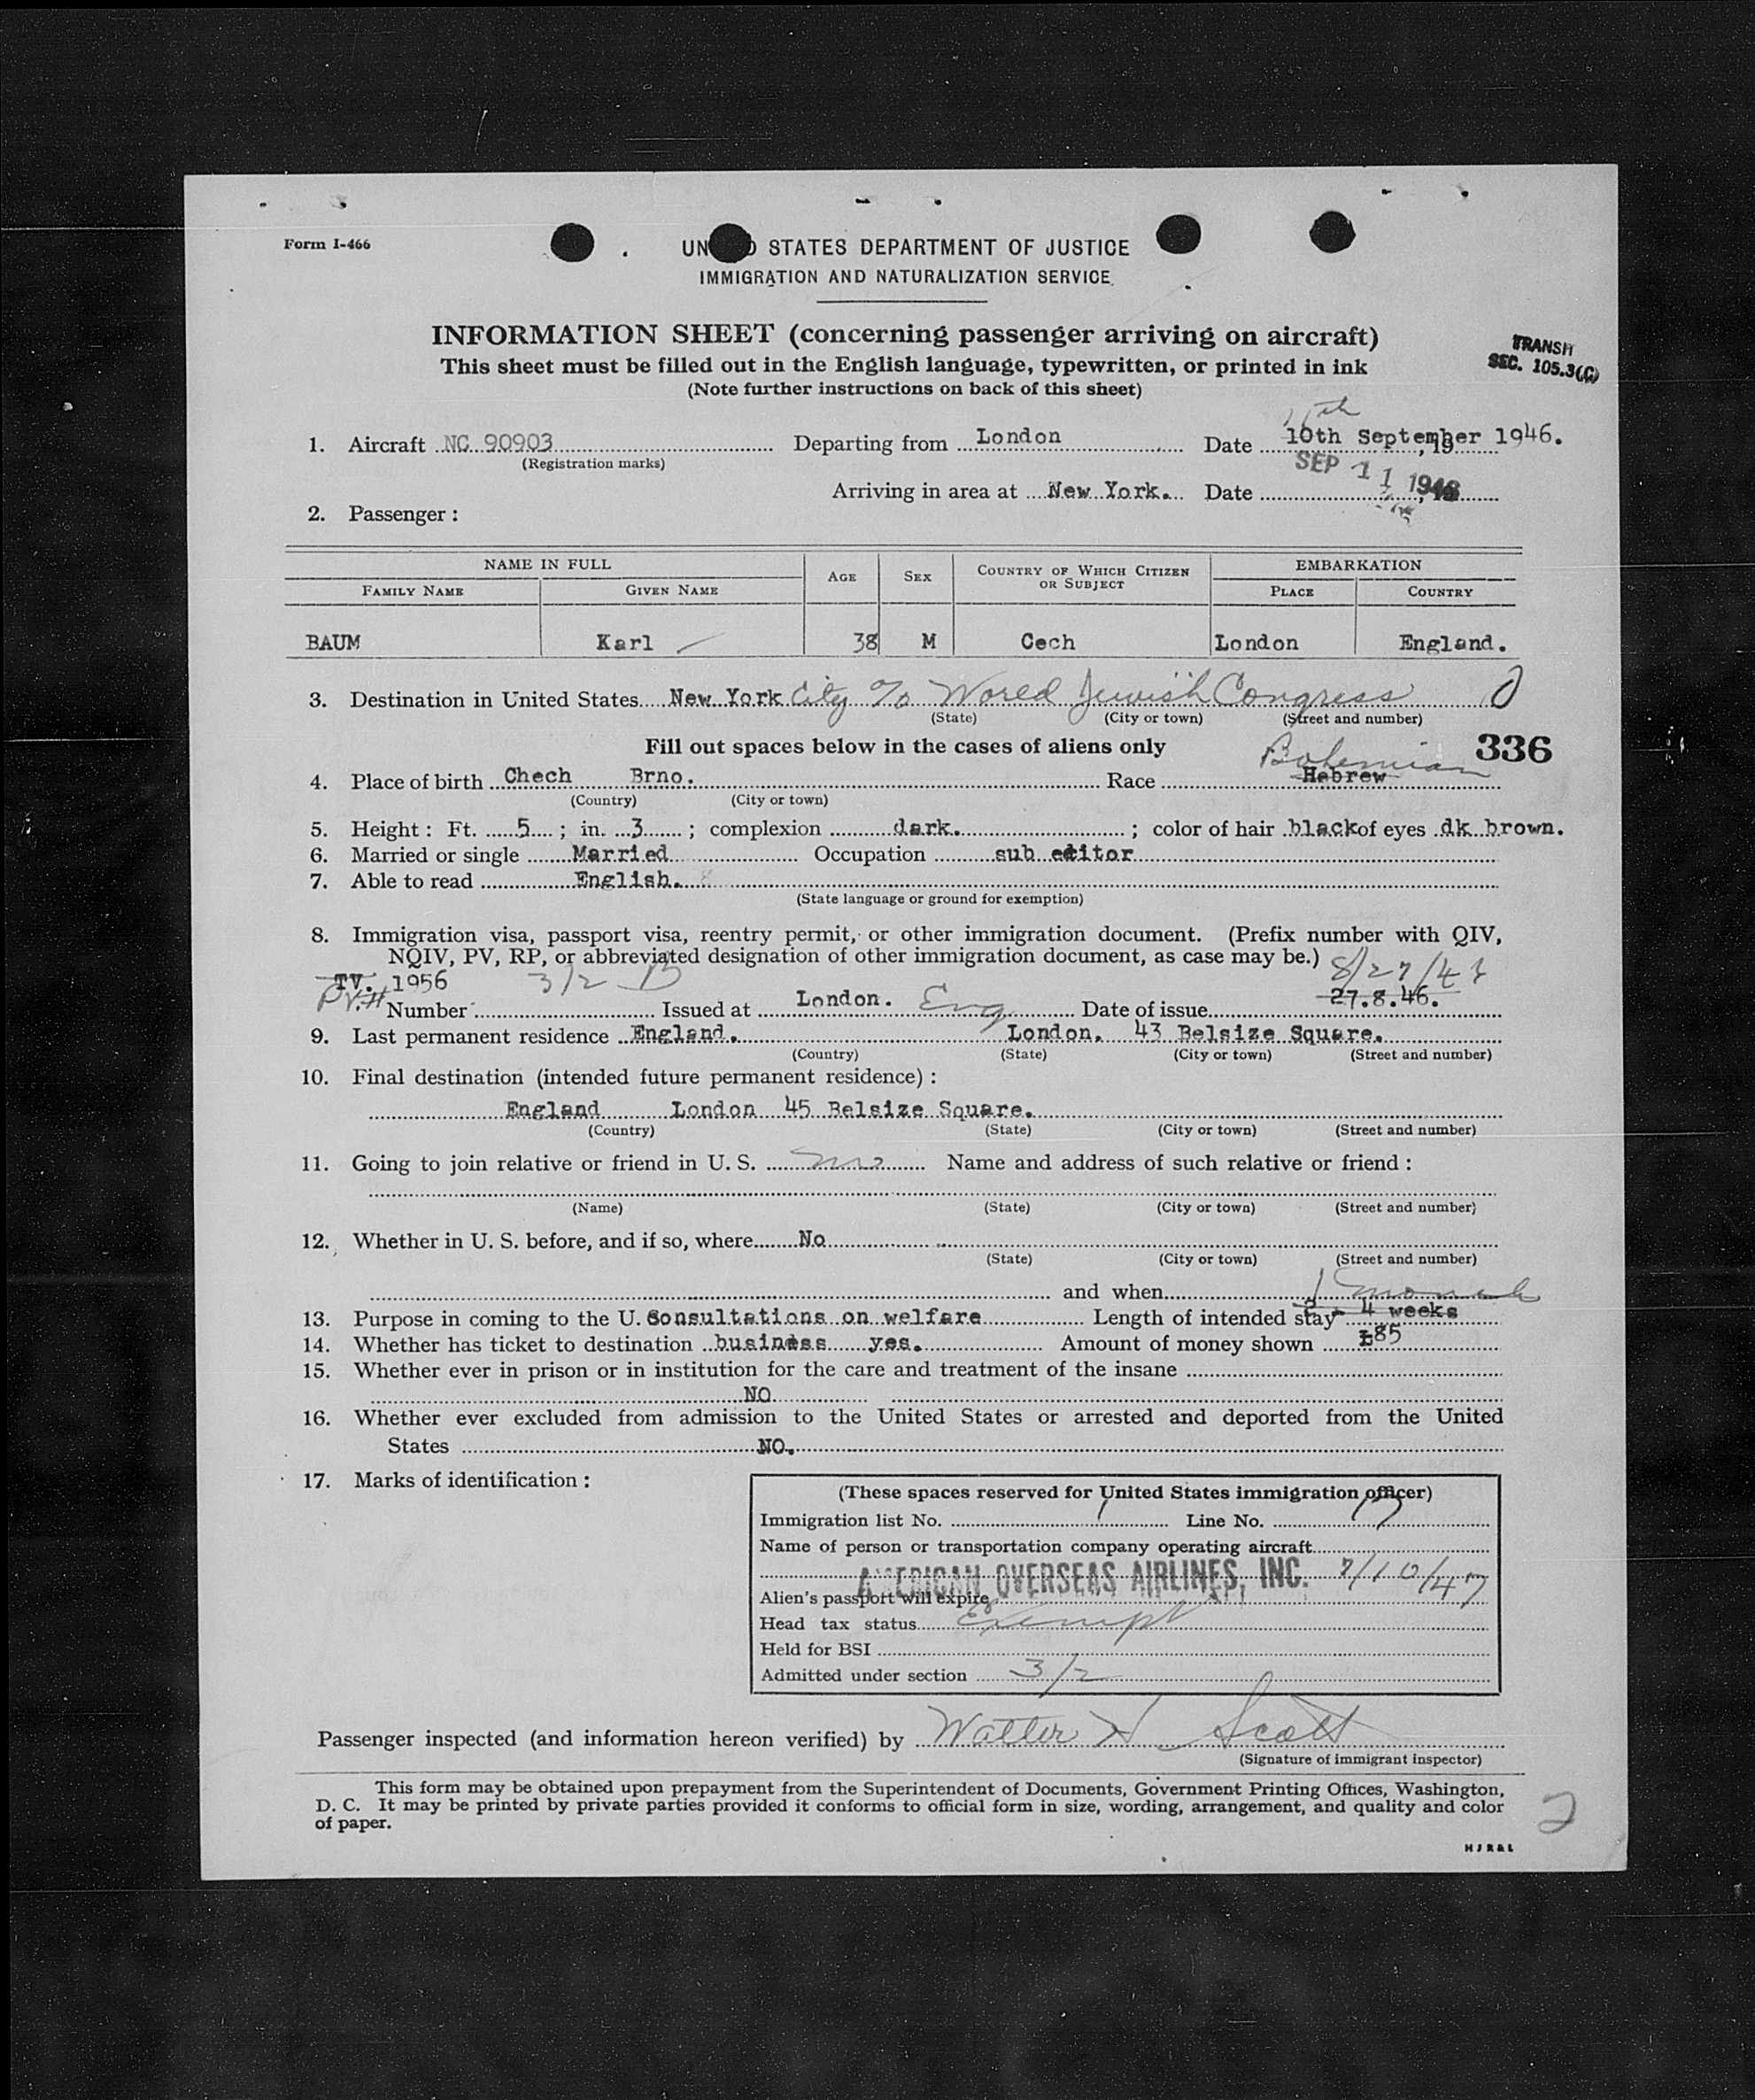 Form I-466
UNITED STATES DEPARTMENT OF JUSTICE
IMMIGRATION AND NATURALIZATION SERVICE
INFORMATION SHEET (concerning passenger arriving on aircraft)
This sheet must be filled out in the English language, typewritten, or printed in ink
(Note further instructions on back of this sheet)
TRANSIT
SEC. 105.3(C)
11th
1. Aircraft NC 90903 Departing from London Date 10th September 1946. , 19
(Registration marks)
SEP 11 1946
Arriving in area at New York. Date
2. Passenger :
NAME IN FULL AGE SEX COUNTRY OF WHICH CITIZEN OR SUBJECT EMBARKATION
FAMILY NAME GIVEN NAME PLACE COUNTRY
BAUM Karl 38 M Cech London England.
3. Destination in United States New York City c/o World Jewish Congress
(State) (City or town) (Street and number)
Fill out spaces below in the cases of aliens only
336
Bohemian
4. Place of birth Chech Brno. Race Hebrew
(Country) (City or town)
5. Height : Ft. 5 ; in. 3 ; complexion dark. ; color of hair black of eyes dk brown.
6. Married or single Married Occupation sub editor
7. Able to read English.
(State language or ground for exemption)
8. Immigration visa, passport visa, reentry permit, or other immigration document. (Prefix number with QIV,
NQIV, PV, RP, or abbreviated designation of other immigration document, as case may be.)
TV. 1956 3/2 B 8/27/4
PV.# Number Issued at London. Eng Date of issue 27.8.46.
9. Last permanent residence England. London. 43 Belsize Square.
(Country) (State) (City or town) (Street and number)
10. Final destination (intended future permanent residence) :
England London 45 Belsize Square.
(Country) (State) (City or town) (Street and number)
11. Going to join relative or friend in U. S. no Name and address of such relative or friend :
(Name) (State) (City or town) (Street and number)
12. Whether in U. S. before, and if so, where No
(State) (City or town) (Street and number)
and when
1 month
13. Purpose in coming to the U. Consultations on welfare Length of intended stay 3 - 4 weeks
14. Whether has ticket to destination business yes. Amount of money shown £85
15. Whether ever in prison or in institution for the care and treatment of the insane
NO
16. Whether ever excluded from admission to the United States or arrested and deported from the United
States NO.
17. Marks of identification :
(These spaces reserved for United States immigration officer)
Immigration list No. 1 Line No. 17
Name of person or transportation company operating aircraft
AMERICAN OVERSEAS AIRLINES, INC. 7/10/47
Alien's passport will expire
Head tax status Exempt
Held for BSI
Admitted under section 3/2
Passenger inspected (and information hereon verified) by Walter H Scott
(Signature of immigrant inspector)
This form may be obtained upon prepayment from the Superintendent of Documents, Government Printing Offices, Washington,
D. C. It may be printed by private parties provided it conforms to official form in size, wording, arrangement, and quality and color
of paper.
2
HJR&L